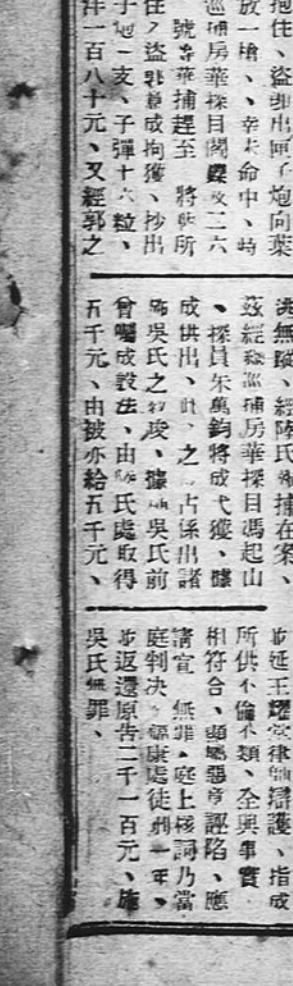 抱住、盜卽出匣子炮向葉
放一槍、幸未命中、時
巡捕房華探目闊 及二六
號 華捕趕至 將 所
住 盜郭 成拘獲、抄出
子 一支、子彈十六粒、
洋一百八十元、又經郭之
逃無蹤、經陸氏 捕在案、
茲經 巡捕房華探目馮起山
、探員朱萬鈞將成弋獲、據
成供出、此 之 占係出諸
施吳氏之 唆、據施吳氏前
曾囑成設法、由 氏處取得
五千元、由被亦給五千元、
並延王耀堂律師辯護、指成
所供不倫不類、全與事實
相符合、顯屬惡意誣陷、應
請宣 無罪、庭上核詞乃當
庭判决 康處徒刑一年、
並返還原告二千一百元、施
吳氏無罪、